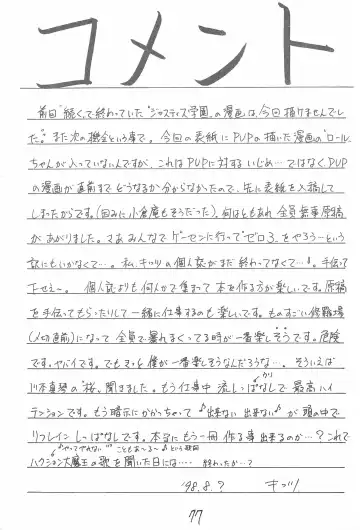 コメント
前回"続く"で終わっていた"ジャスティス学園"の漫画は、今回描けませんでし
た。また次の機会という事で。今回の表紙にPVPの描いた漫画の"ロール
ちゃんが入っていないんですが、これはPVPに対するいじめ…ではなくPVP
の漫画が直前までどうなるか分からなかったので、先に表紙を入稿して
しまったからです。(因みに小倉庵もそうだった)。何はともあれ全員無事原稿
があがりました。さあみんなでゲーセンに行って"ゼロ3"をやろうーという
訳にもいかなくて…。私、キッツの個人誌がまだ終わってなくて…。手伝って
下せェー。個人誌よりも何人かで集まって本を作る方が楽しいです。原稿
を手伝ってもらったりして一緒に仕事するのも楽しいです。ものすごい修羅場
(〆切直前)になって全員で暴れまくってる時が一番楽しそうです。危険
です。ヤバイです。でもきっと僕が一番楽しそうなんだろうな…。そういえば
川本真琴の"桜"聞きました。もう仕事中流しっぱなしで最高ハイ
ばっかり
テンションです。もう暗示にかかっちゃって♪出来ない出来ない♪が頭の中で
リフレインしーぱなしです。本当にもう一冊作る事出来るのか…?これで
♪やってやれない こともあ〜る〜♪という歌詞
ハクション大魔王の歌を聞いた日には…… 終わったか…?
'98.8.? キッツ
77